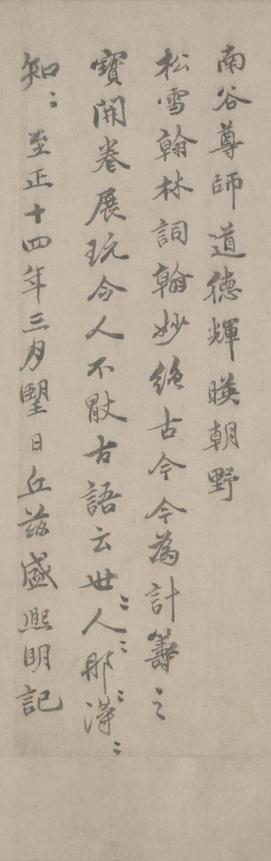 南谷尊師道德輝暎朝野
松雪翰林詞翰妙絶古今今為計籌之
寶開卷展玩令人不厭古語云世〻人〻那〻得〻
知〻至正十四年三月望日丘茲盛熙明記